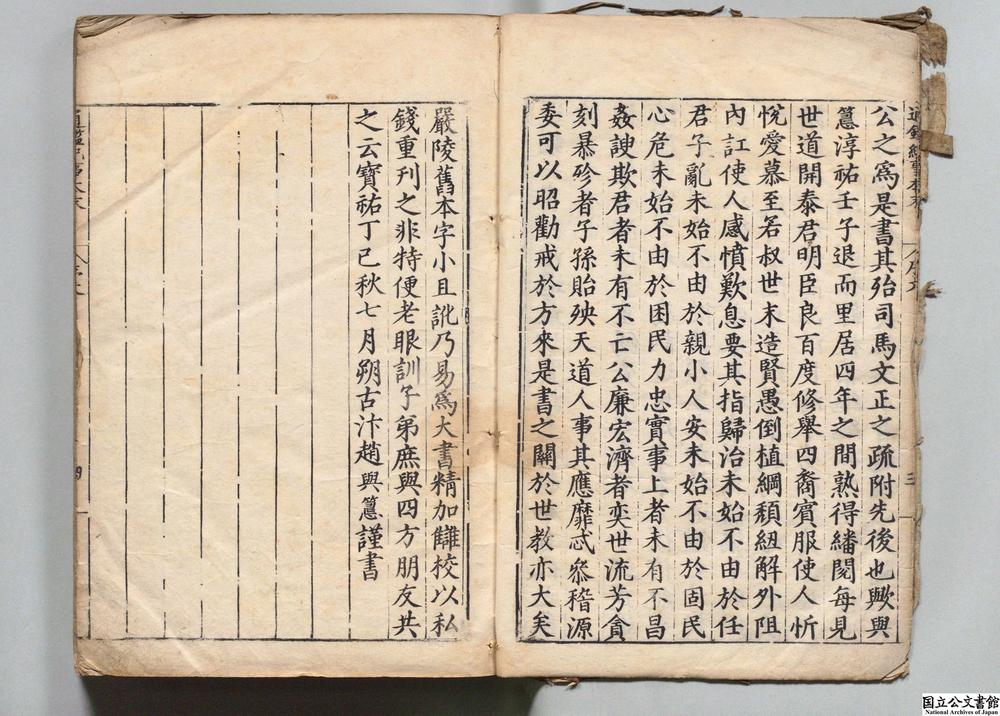 公之爲是書其殆司馬文正之疏附先後也歟與
𥲅淳祐壬子退而里居四年之間熟得繙閱每見
世道開泰君明臣良百度修舉四裔賓服使人忻
悅愛慕至若叔世末造賢愚倒植綱頹紐解外阻
內訌使人感憤歎息要其指歸治未始不由於任
君子亂未始不由於親小人安未始不由於固民
心危未始不由於困民力忠實事上者未有不昌
姦諛欺君者未有不亡公廉宏濟者奕世流芳貪
刻暴殄者子孫貽殃天道人事其應靡忒叅稽源
委可以昭勸戒於方來是書之關於世教亦大矣
嚴陵舊本字小且訛乃易爲大書精加讎校以私
錢重刊之非特便老眼訓子弟庶與四方朋友共
之云寶祐丁巳秋七月朔古汴趙與𥲅謹書
通鑑紀事本末
三
四
国立公文書館
National Archives of Japan